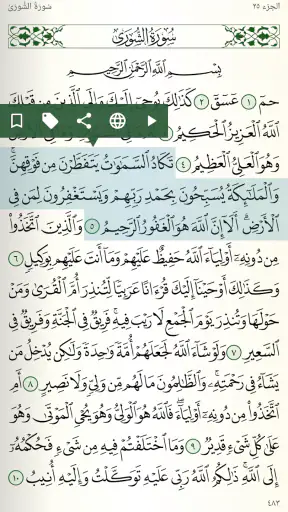 الجزء ٢٥
سُورَةُ الشُّورَىٰ
سُورَةُ الشُّورَىٰ
بِسْمِ ٱللَّهِ ٱلرَّحْمَٰنِ ٱلرَّحِيمِ
حمٓ ١ عٓسٓقٓ ٢ كَذَٰلِكَ يُوحِىٓ إِلَيْكَ وَإِلَى ٱلَّذِينَ مِن قَبْلِكَ
ٱللَّهُ ٱلْعَزِيزُ ٱلْحَكِيمُ
وَهُوَ ٱلْعَلِىُّ ٱلْعَظِيمُ ٤ تَكَادُ ٱلسَّمَٰوَٰتُ يَتَفَطَّرْنَ مِن فَوْقِهِنَّ ۚ
وَٱلْمَلَٰٓئِكَةُ يُسَبِّحُونَ بِحَمْدِ رَبِّهِمْ وَيَسْتَغْفِرُونَ لِمَن فِى
ٱلْأَرْضِ ۗ أَلَآ إِنَّ ٱللَّهَ هُوَ ٱلْغَفُورُ ٱلرَّحِيمُ ٥ وَٱلَّذِينَ ٱتَّخَذُوا۟
مِن دُونِهِۦٓ أَوْلِيَآءَ ٱللَّهُ حَفِيظٌ عَلَيْهِمْ وَمَآ أَنتَ عَلَيْهِم بِوَكِيلٍ ٦
وَكَذَٰلِكَ أَوْحَيْنَآ إِلَيْكَ قُرْءَانًا عَرَبِيًّا لِّتُنذِرَ أُمَّ ٱلْقُرَىٰ وَمَنْ
حَوْلَهَا وَتُنذِرَ يَوْمَ ٱلْجَمْعِ لَا رَيْبَ فِيهِ ۚ فَرِيقٌ فِى ٱلْجَنَّةِ وَفَرِيقٌ فِى
ٱلسَّعِيرِ ٧ وَلَوْ شَآءَ ٱللَّهُ لَجَعَلَهُمْ أُمَّةً وَٰحِدَةً وَلَٰكِن يُدْخِلُ مَن
يَشَآءُ فِى رَحْمَتِهِۦ ۚ وَٱلظَّٰلِمُونَ مَا لَهُم مِّن وَلِىٍّ وَلَا نَصِيرٍ ٨ أَمِ
ٱتَّخَذُوا۟ مِن دُونِهِۦٓ أَوْلِيَآءَ ۖ فَٱللَّهُ هُوَ ٱلْوَلِىُّ وَهُوَ يُحْىِ ٱلْمَوْتَىٰ وَهُوَ
عَلَىٰ كُلِّ شَىْءٍ قَدِيرٌ ٩ وَمَا ٱخْتَلَفْتُمْ فِيهِ مِن شَىْءٍ فَحُكْمُهُۥٓ
إِلَى ٱللَّهِ ۚ ذَٰلِكُمُ ٱللَّهُ رَبِّى عَلَيْهِ تَوَكَّلْتُ وَإِلَيْهِ أُنِيبُ ١٠
٤٨٣